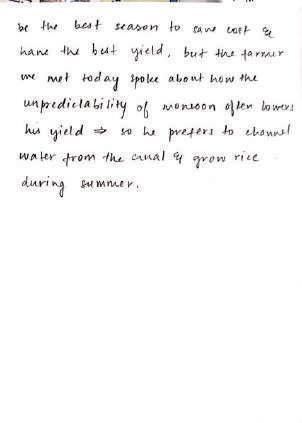 be the best season to save cost &
have the best yield, but the farmer
we met today spoke about how the
unpredictability of monsoon often lowers
his yield ⇒ so he prefers to channel
water from the canal & grow rice
during summer.